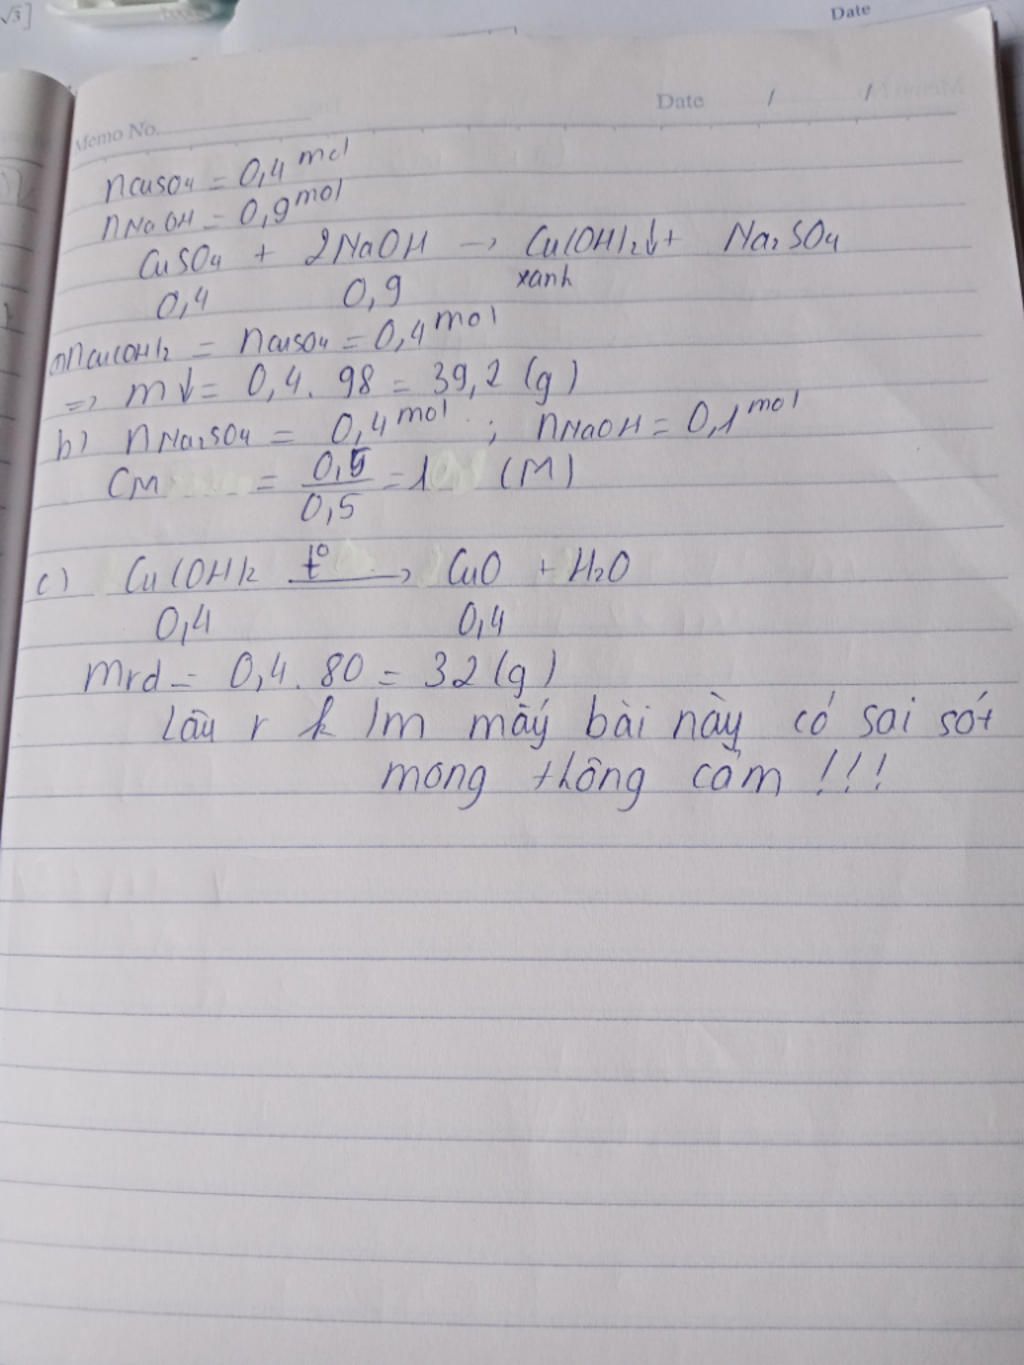 √3]
Date
Memo No.
Date / /
nCuSO4 = 0,4 mol
nNaOH = 0,9 mol
CuSO4 + 2NaOH → Cu(OH)2↓ + Na2SO4
xanh
0,4 0,9
a) nCu(OH)2 = nCuSO4 = 0,4 mol
=> m↓ = 0,4. 98 = 39,2 (g)
b) nNa2SO4 = 0,4 mol ; nNaOH = 0,1 mol
CM = 0,5/0,5 = 1 (M)
c) Cu(OH)2 t° → CuO + H2O
0,4 0,4
mrd = 0,4. 80 = 32 (g)
Lâu r k lm mấy bài này có sai sót
mong thông cảm !!!